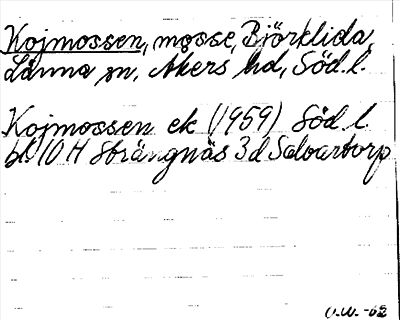 Kojmossen, mosse, Björklida,
Länna sn, Åkers hd, Söd. l.
Kojmossen ek (1959) Söd. l.
bl 10 H Strängnäs 3 d Salvartorp
O.W. -62